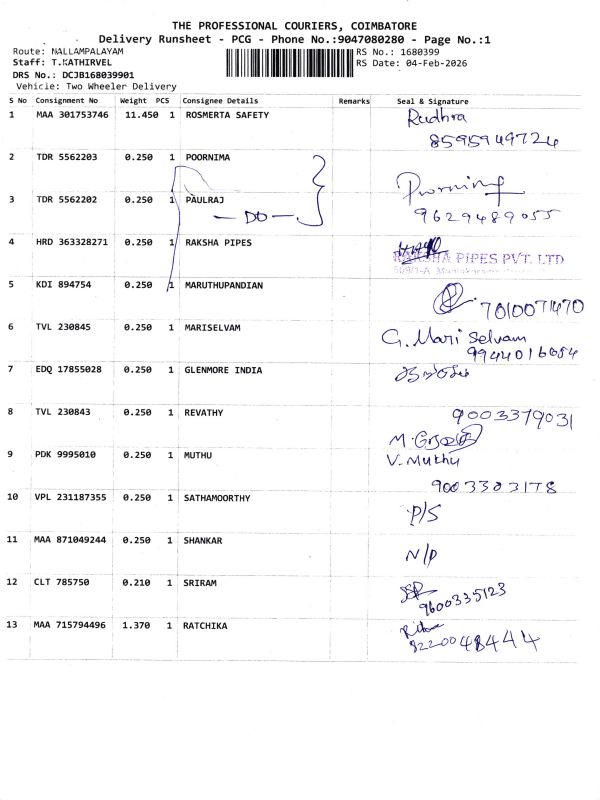 THE PROFESSIONAL COURIERS, COIMBATORE
Delivery Runsheet - PCG - Phone No.:9047080280 - Page No.:1
Route: NALLAMPALAYAM RS No.: 1680399
Staff: T.KATHIRVEL RS Date: 04-Feb-2026
DRS No.: DCJB168039901
Vehicle: Two Wheeler Delivery
S No Consignment No Weight PCS Consignee Details Remarks Seal & Signature
1 MAA 301753746 11.450 1 ROSMERTA SAFETY Rudhra
8595949724
2 TDR 5562203 0.250 1 POORNIMA
3 TDR 5562202 0.250 1 PAULRAJ
- DO - 9629489055
4 HRD 363328271 0.250 1 RAKSHA PIPES RAKSHA PIPES PVT. LTD
5 KDI 894754 0.250 1 MARUTHUPANDIAN
7010071470
6 TVL 230845 0.250 1 MARISELVAM G. Mari Selvam
9944016054
7 EDQ 17855028 0.250 1 GLENMORE INDIA
8 TVL 230843 0.250 1 REVATHY 9003379031
9 PDK 9995010 0.250 1 MUTHU V. Muthu
9003303178
10 VPL 231187355 0.250 1 SATHAMOORTHY P/S
11 MAA 871049244 0.250 1 SHANKAR N/P
12 CLT 785750 0.210 1 SRIRAM
9600335123
13 MAA 715794496 1.370 1 RATCHIKA
9220048444